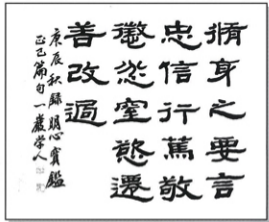 脩身之要言
忠信行篤敬
懲忿窒慾遷
善改過
庚辰秋錄明心寶鑑
正己篇句一巖学人